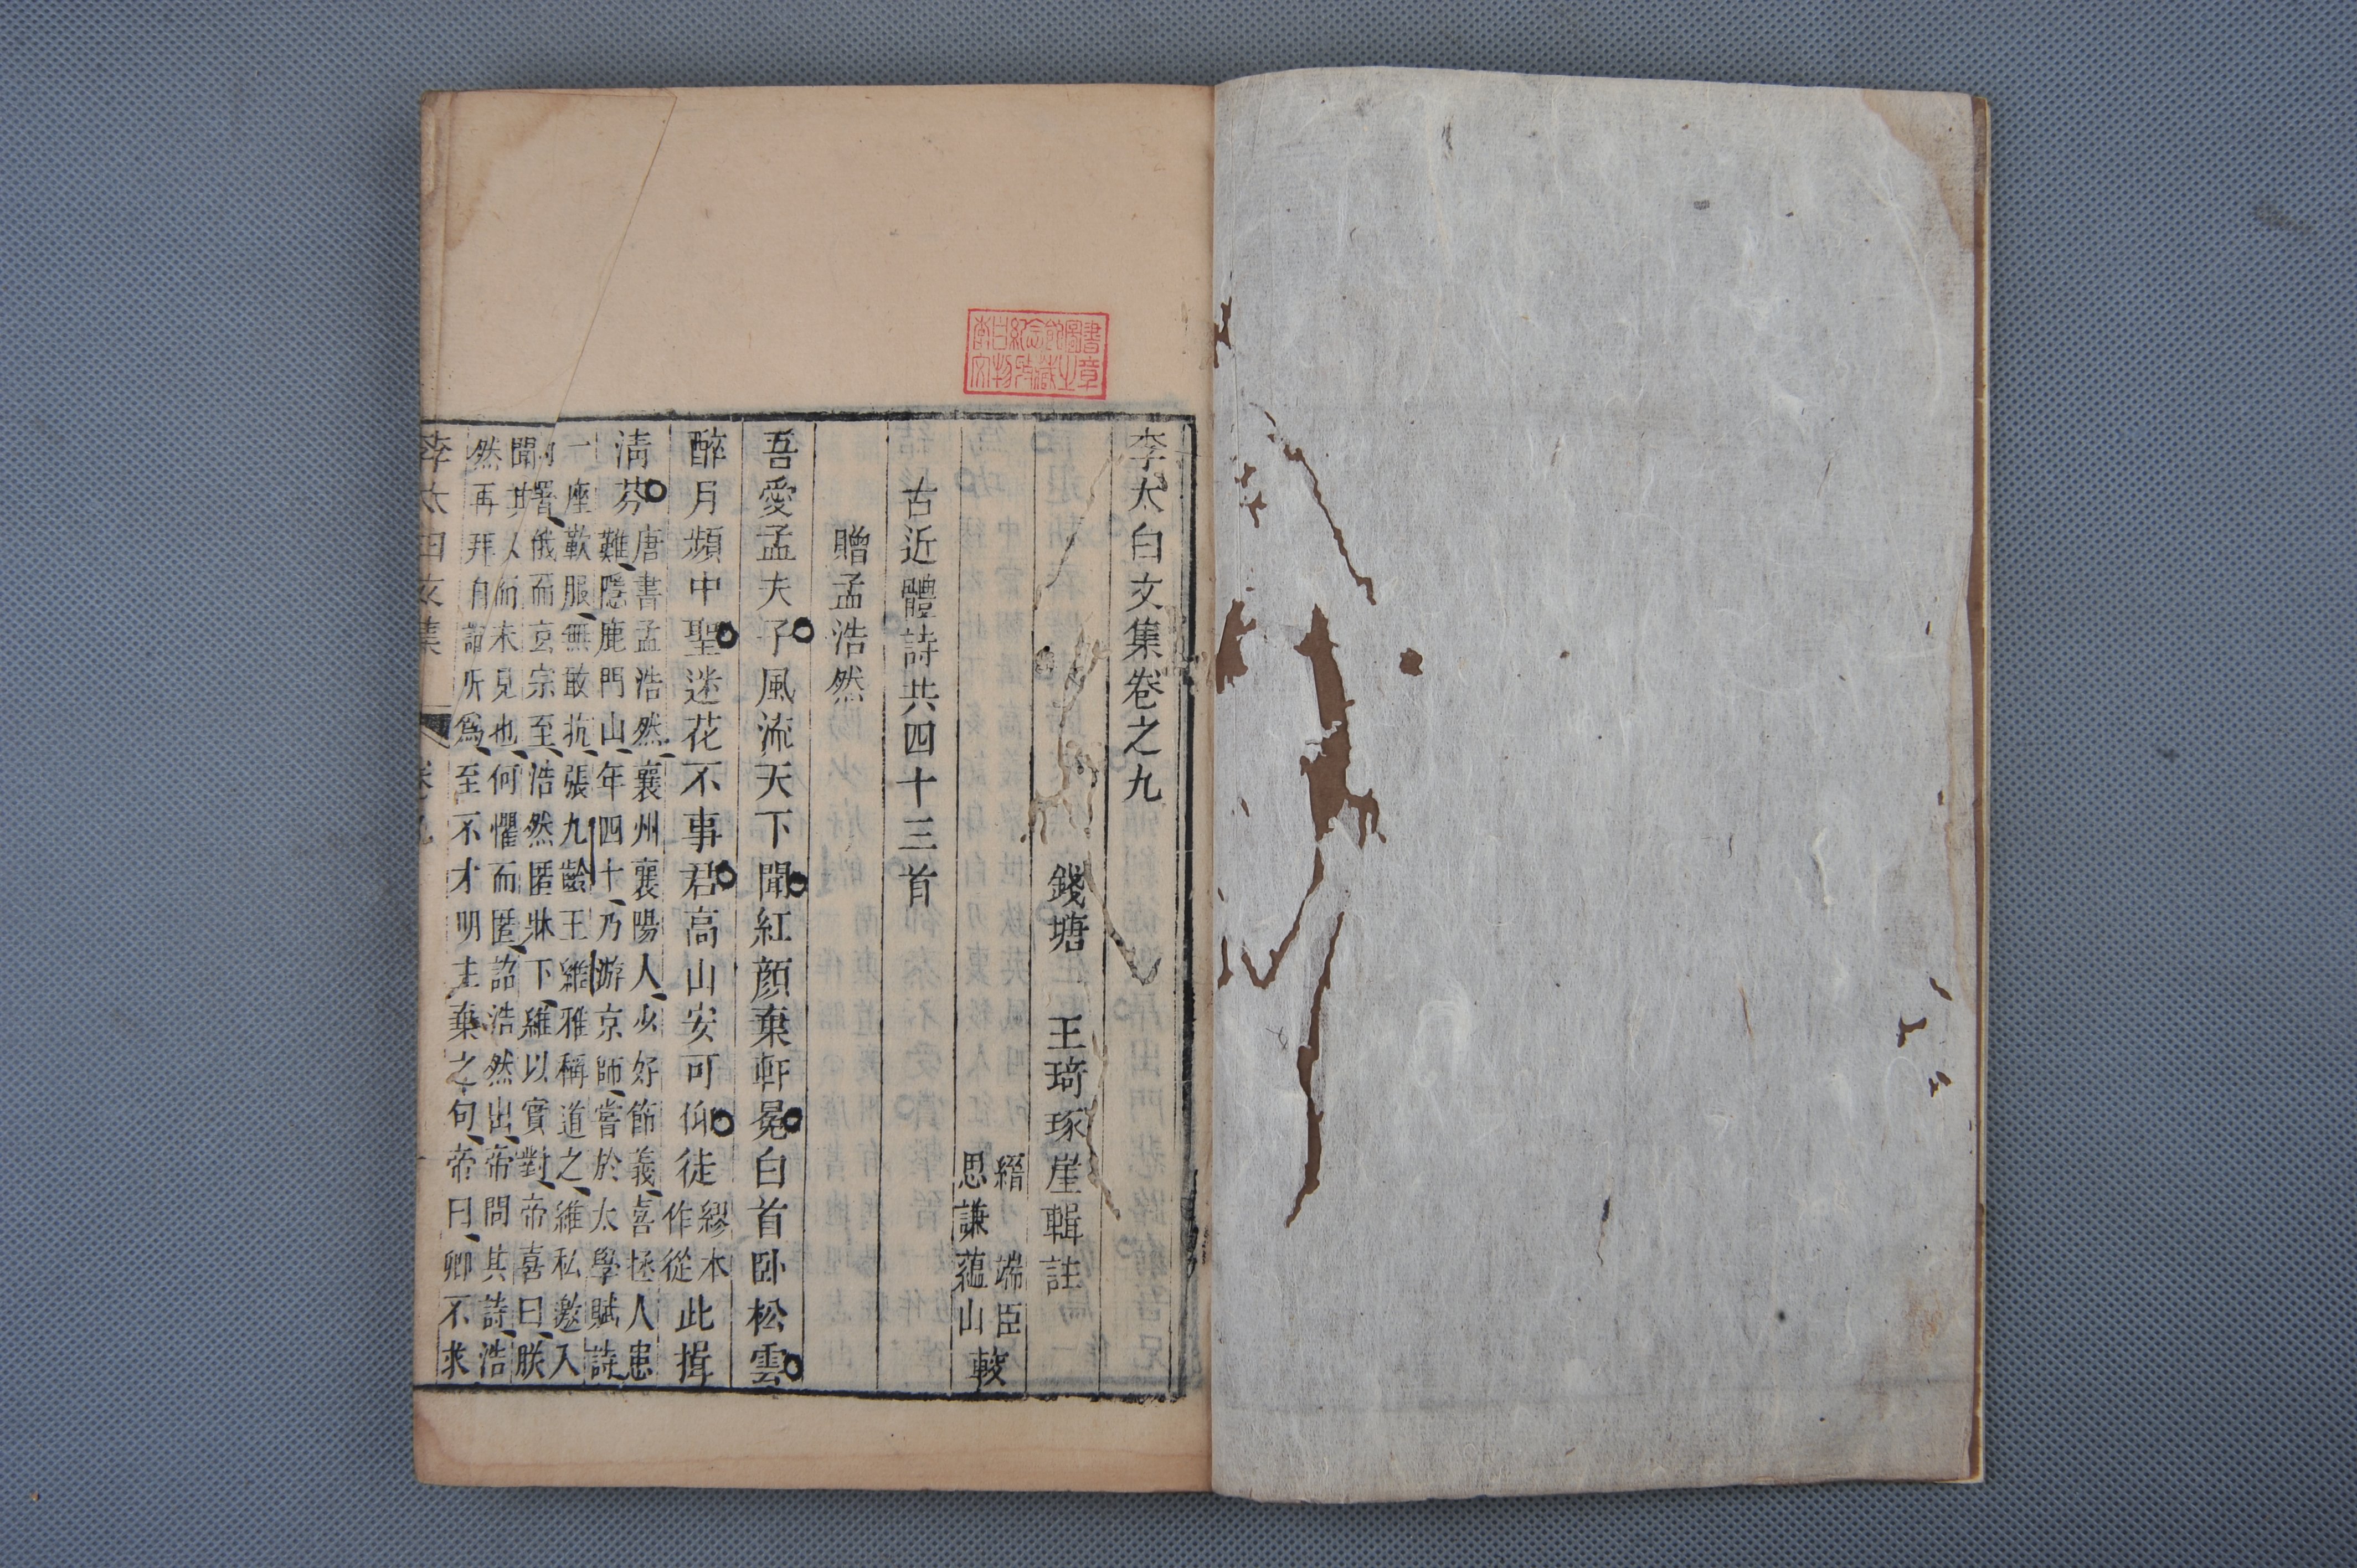 李太白文集卷之九
錢塘　王琦琢崖輯註
縉　端臣
思謙蘊山　較
古近體詩共四十三首
贈孟浩然
吾愛孟夫子風流天下聞紅顔棄軒冕白首卧松雲
醉月頻中聖迷花不事君高山安可仰徒
繆本
作從
此揖
清芬
唐書孟浩然襄州襄陽人少好節義喜拯人患
難隱鹿門山年四十乃游京師嘗於太學賦詩
一座歎服無敢抗張九齡王維雅稱道之維私邀入
內署俄而玄宗至浩然匿牀下維以實對帝喜曰朕
聞其人而未見也何懼而匿詔浩然出帝問其詩浩
然再拜自誦所爲至不才明主棄之句帝曰卿不求
李太白文集
卷九
李白紀念館圖書
文物時藏之章